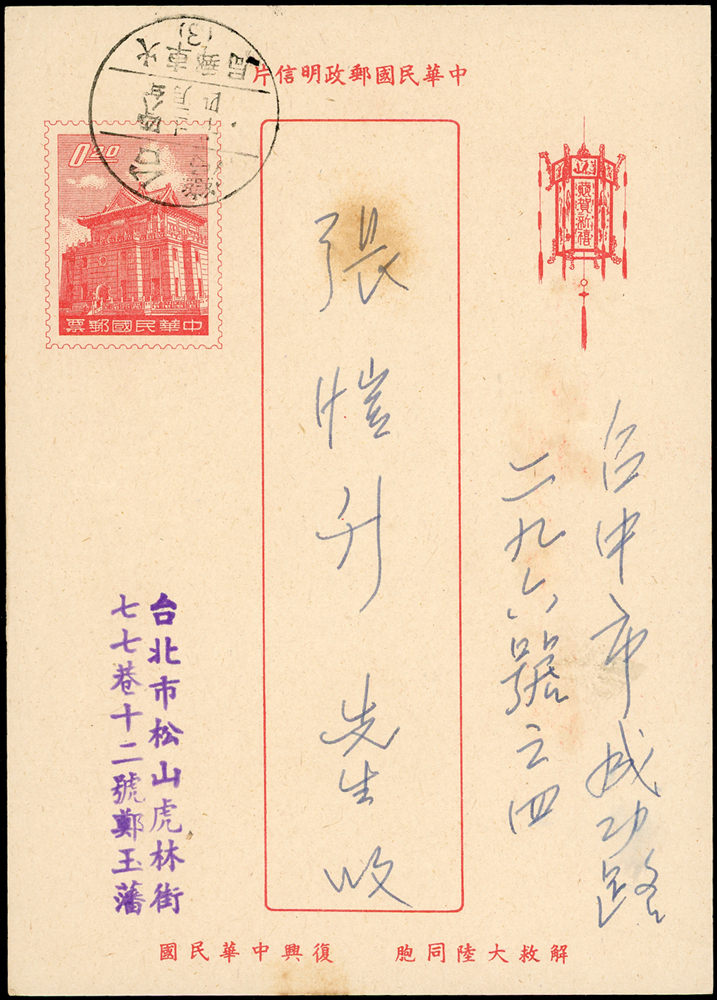 中華民國郵政明信片
恭賀新禧
0.20
中華民國郵票
台中市成功路
二九六號之四
張愷升先生收
台北市松山虎林街
七七巷十二號鄭玉藩
解救大陸同胞 復興中華民國